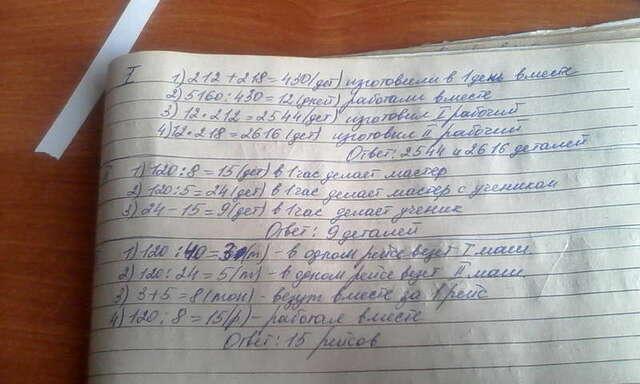 I 1) 212 + 218 = 430 (дет) изготовили в 1 день вместе
2) 5160 : 430 = 12 (дней) работали вместе
3) 12 · 212 = 2544 (дет) изготовил I рабочий
4) 12 · 218 = 2616 (дет) изготовил II рабочий
Ответ: 2544 и 2616 деталей
1) 120 : 8 = 15 (дет) в 1 час делает мастер
2) 120 : 5 = 24 (дет) в 1 час делает мастер с учеником
3) 24 - 15 = 9 (дет) в 1 час делает ученик
Ответ: 9 деталей
1) 120 : 40 = 3 (т) - в одном рейсе везет I маш
2) 120 : 24 = 5 (т) - в одном рейсе везет II маш
3) 3 + 5 = 8 (тон) - везут вместе за 1 рейс
4) 120 : 8 = 15 (р) - работая вместе
Ответ: 15 рейсов